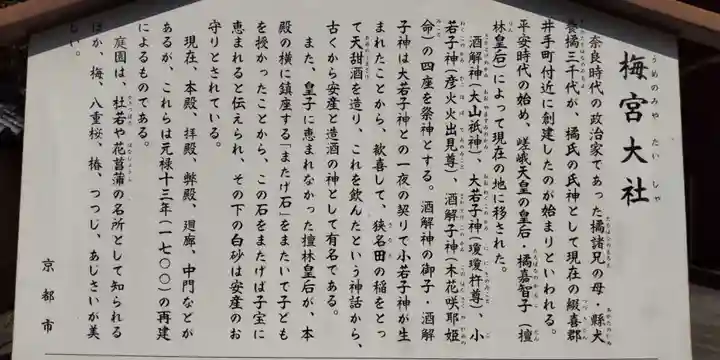 梅宮大社
うめのみやたいしゃ
奈良時代の政治家であった橘諸兄の母・縣犬
養橘三千代が、橘氏の氏神として現在の綴喜郡
井手町付近に創建したのが始まりといわれる。
平安時代の始め、嵯峨天皇の皇后・橘嘉智子（檀
林皇后）によって現在の地に移された。
酒解神（大山祇神）、大若子神（瓊瓊杵尊）、小
若子神（彦火火出見尊）、酒解子神（木花咲耶姫
命）の四座を祭神とする。酒解神の御子・酒解
子神は大若子神との一夜の契りで小若子神が生
まれたことから、歓喜して、狭名田の稲をとっ
て天甜酒を造り、これを飲んだという神話から、
古くから安産と造酒の神として有名である。
また、皇子に恵まれなかった檀林皇后が、本
殿の横に鎮座する「またげ石」をまたいで子ども
を授かったことから、この石をまたげば子宝に
恵まれると伝えられ、その下の白砂は安産のお
守りとされている。
現在、本殿、拝殿、幣殿、廻廊、中門などが
あるが、これらは元禄十三年（一七〇〇）の再建
によるものである。
庭園は、杜若や花菖蒲の名所として知られる
ほか、梅、八重桜、椿、つつじ、あじさいが美
しい。
京都市